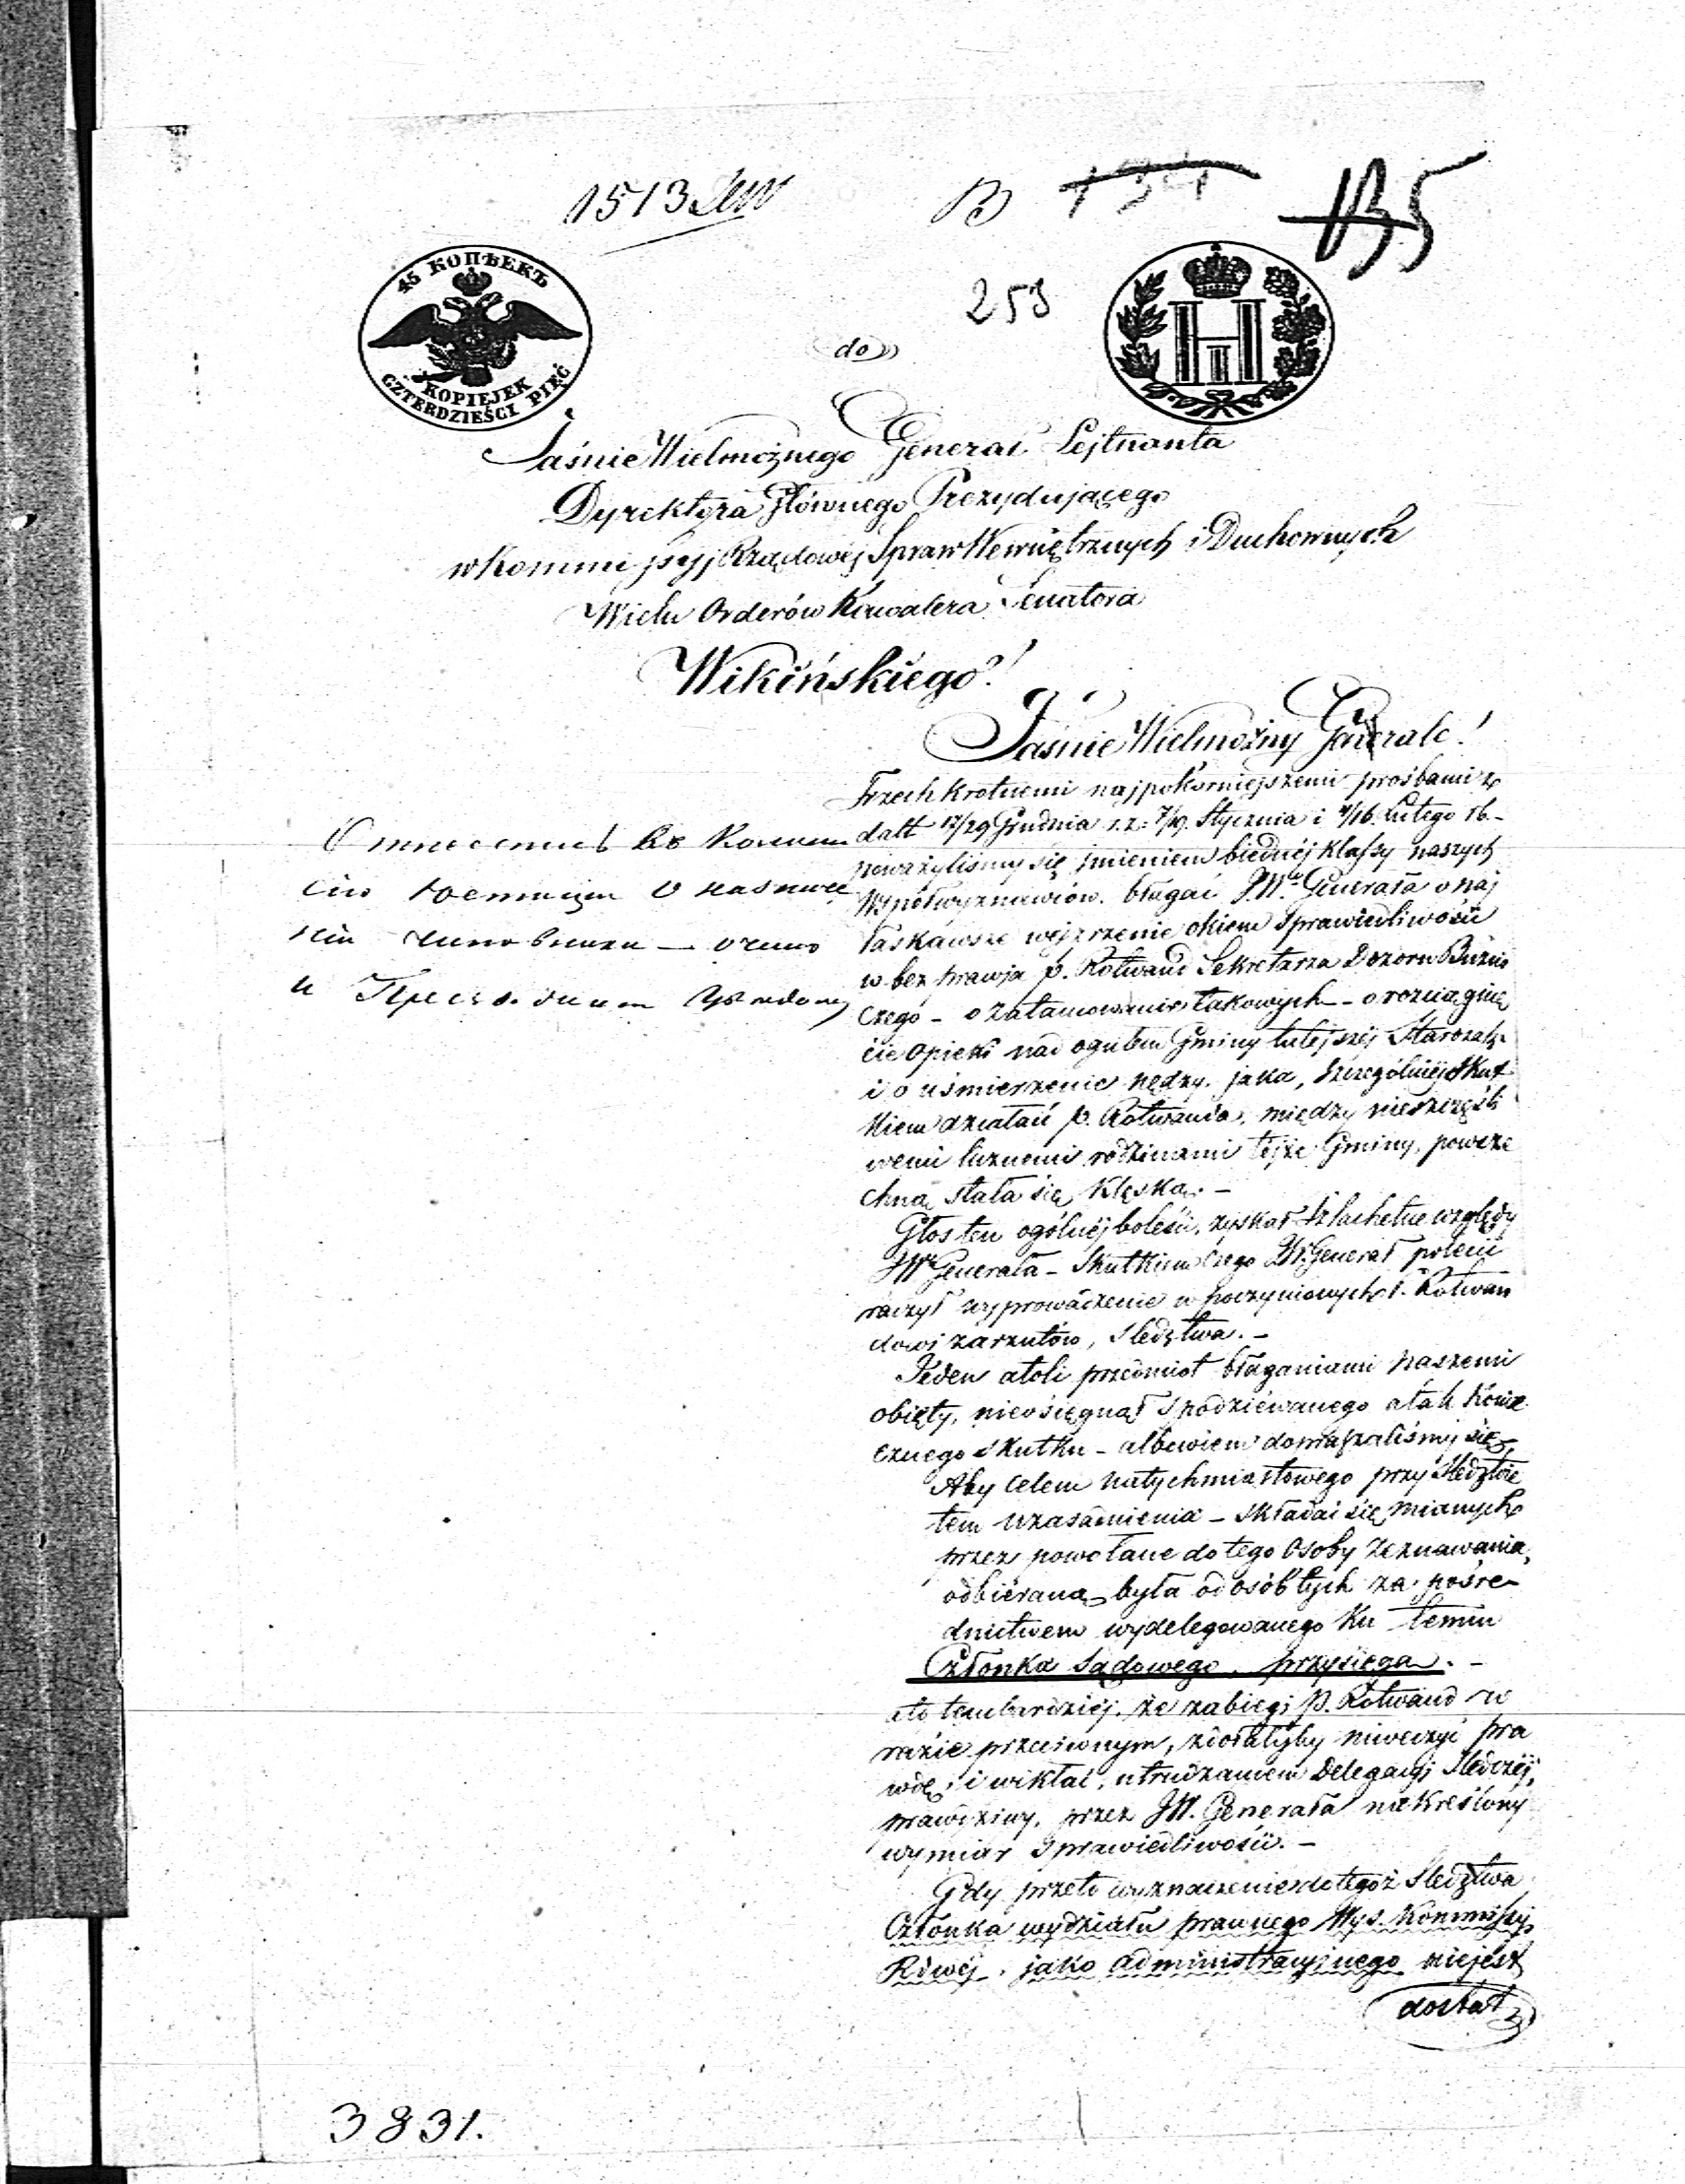 1513
B
135
253
45 КОПѢЕКЪ
KOPIEJEK
CZTERDZIEŚCI PIĘĆ
do
Jaśnie Wielmożnego Generał Lejtnanta
Dyrektora Głównego Prezydującego
w Kommissyj Rządowéj Spraw Wewnętrznych i Duchownych
Wielu Orderów Kawalera Senatora
Wikińskiego!
Jaśnie Wielmożny Generale!
Trzechkrotnemi najpokorniejszemi prośbami z
datt 17/29 Grudnia r. z. 7/19. Stycznia i 4/16 Lutego rb. -
poważyliśmy się imieniem biednéj klassy naszych
Współwyznawców. błagać JW. Generała o naj
łaskawsze wejrzenie okiem Sprawiedliwości
w bezprawja p. Rotwand Sekretarza Dozoru Bużni
czego - o zatamowanie takowych - o rozciągnię
cie opieki nad ogułem Gminy tutejszéj Starozak.
i o uśmierzenie nędzy. jaka, szczególniéj skut
kiem działań p. Rotwanda, między nieszczęśli
wemi licznemi rodzinami tejże Gminy, powsze
chną stała się klęską. -
Głos ten ogólnéj boleści, zyskał szlachetne względy
JW Generała - Skutkiem czego JW. Generał polecić
raczył wyprowadzenie w poczynionych p. Rotwan
dowi zarzutów, sledztwa. -
Jeden atoli przedmiot błaganiami naszemi
objęty, nieosięgnął spodziéwanego a tak konie
cznego skutku - albowiem domagaliśmy się,
Aby celem natychmiastowego przy sledztwie
tem uzasadnienia - składać się mianych
przez powołane do tego Osoby zeznawania,
odbiéraną była od osób tych za pośre-
dnictwem wydelegowanego ku temu
Członka Sądowego. przysięga. -
a to tembardziéj. że zabiegi p. Rotwand w
razie przeciwnym, zdołałyby niweczyć pra
wdę, i wikłać, utrudzaniem Delegacyj Sledczéj,
prawdziwy, przez JW. Generała nakreślony
wymiar Sprawiedliwości. -
Gdy przeto wyznaczenie do tegoż Sledztwa
Członka wydziału prawnego Wys. Kommissyj
Rdwéj. jako administracyjnego niejest
dostat
3831.